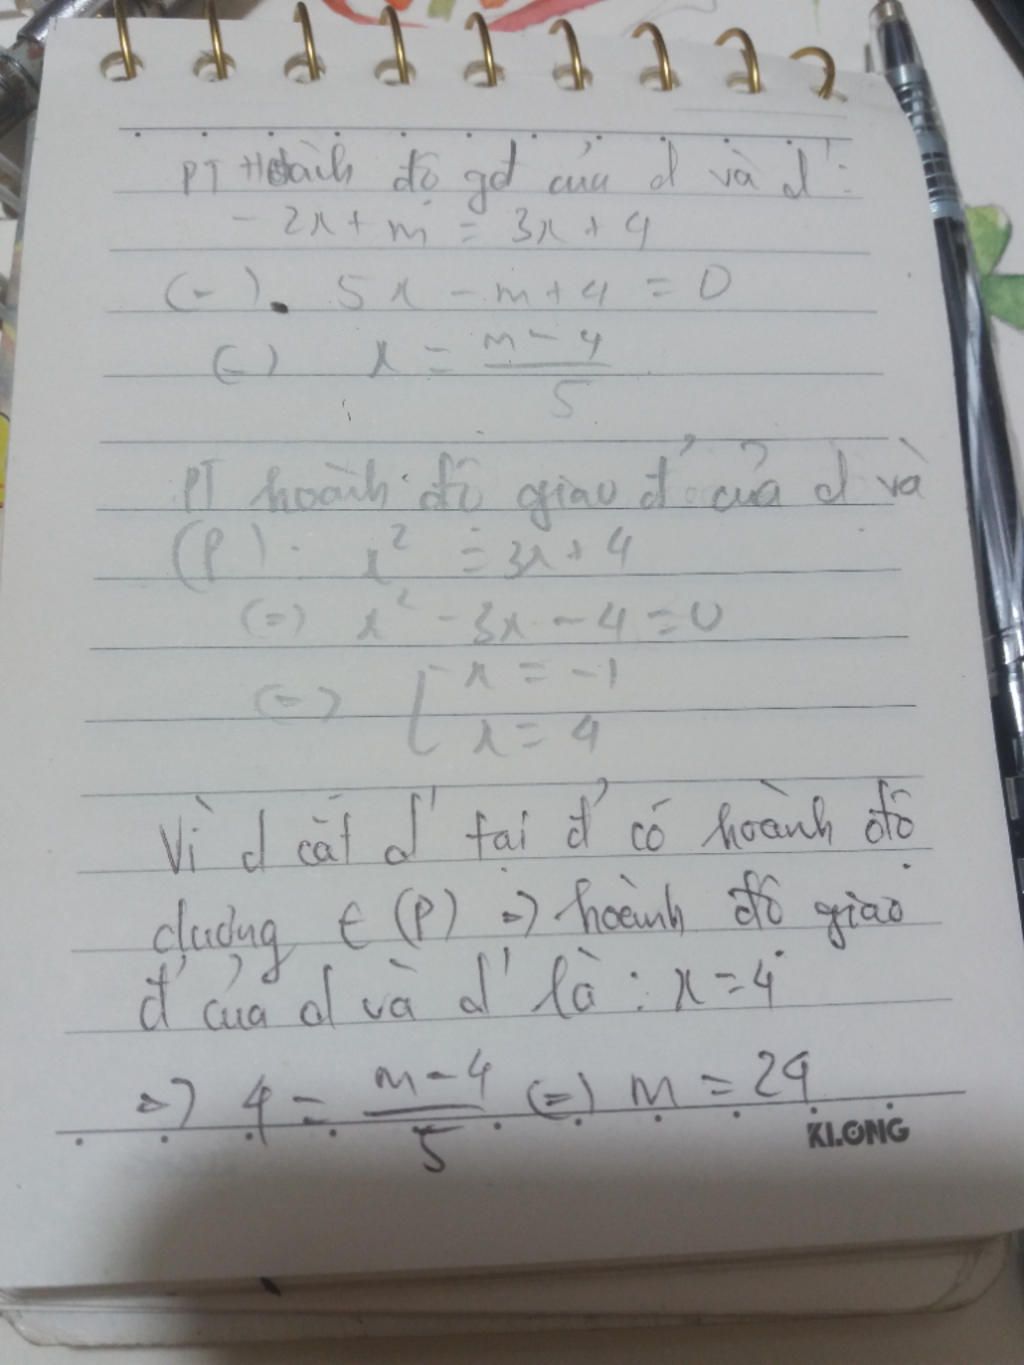 PT Hoành độ gđ của d và d':
- 2x + m = 3x + 4
(=). 5x - m + 4 = 0
(=) x = \frac{m - 4}{5}
PT hoành độ giao đ' của d và
(P): x² = 3x + 4
(=) x² - 3x - 4 = 0
(=) [ x = -1
x = 4
Vì d cắt d' tại đ' có hoành độ
dương ∈ (P) => hoành độ giao
đ' của d và d' là: x = 4
=> 4 = \frac{m - 4}{5} (=) m = 24
KLONG